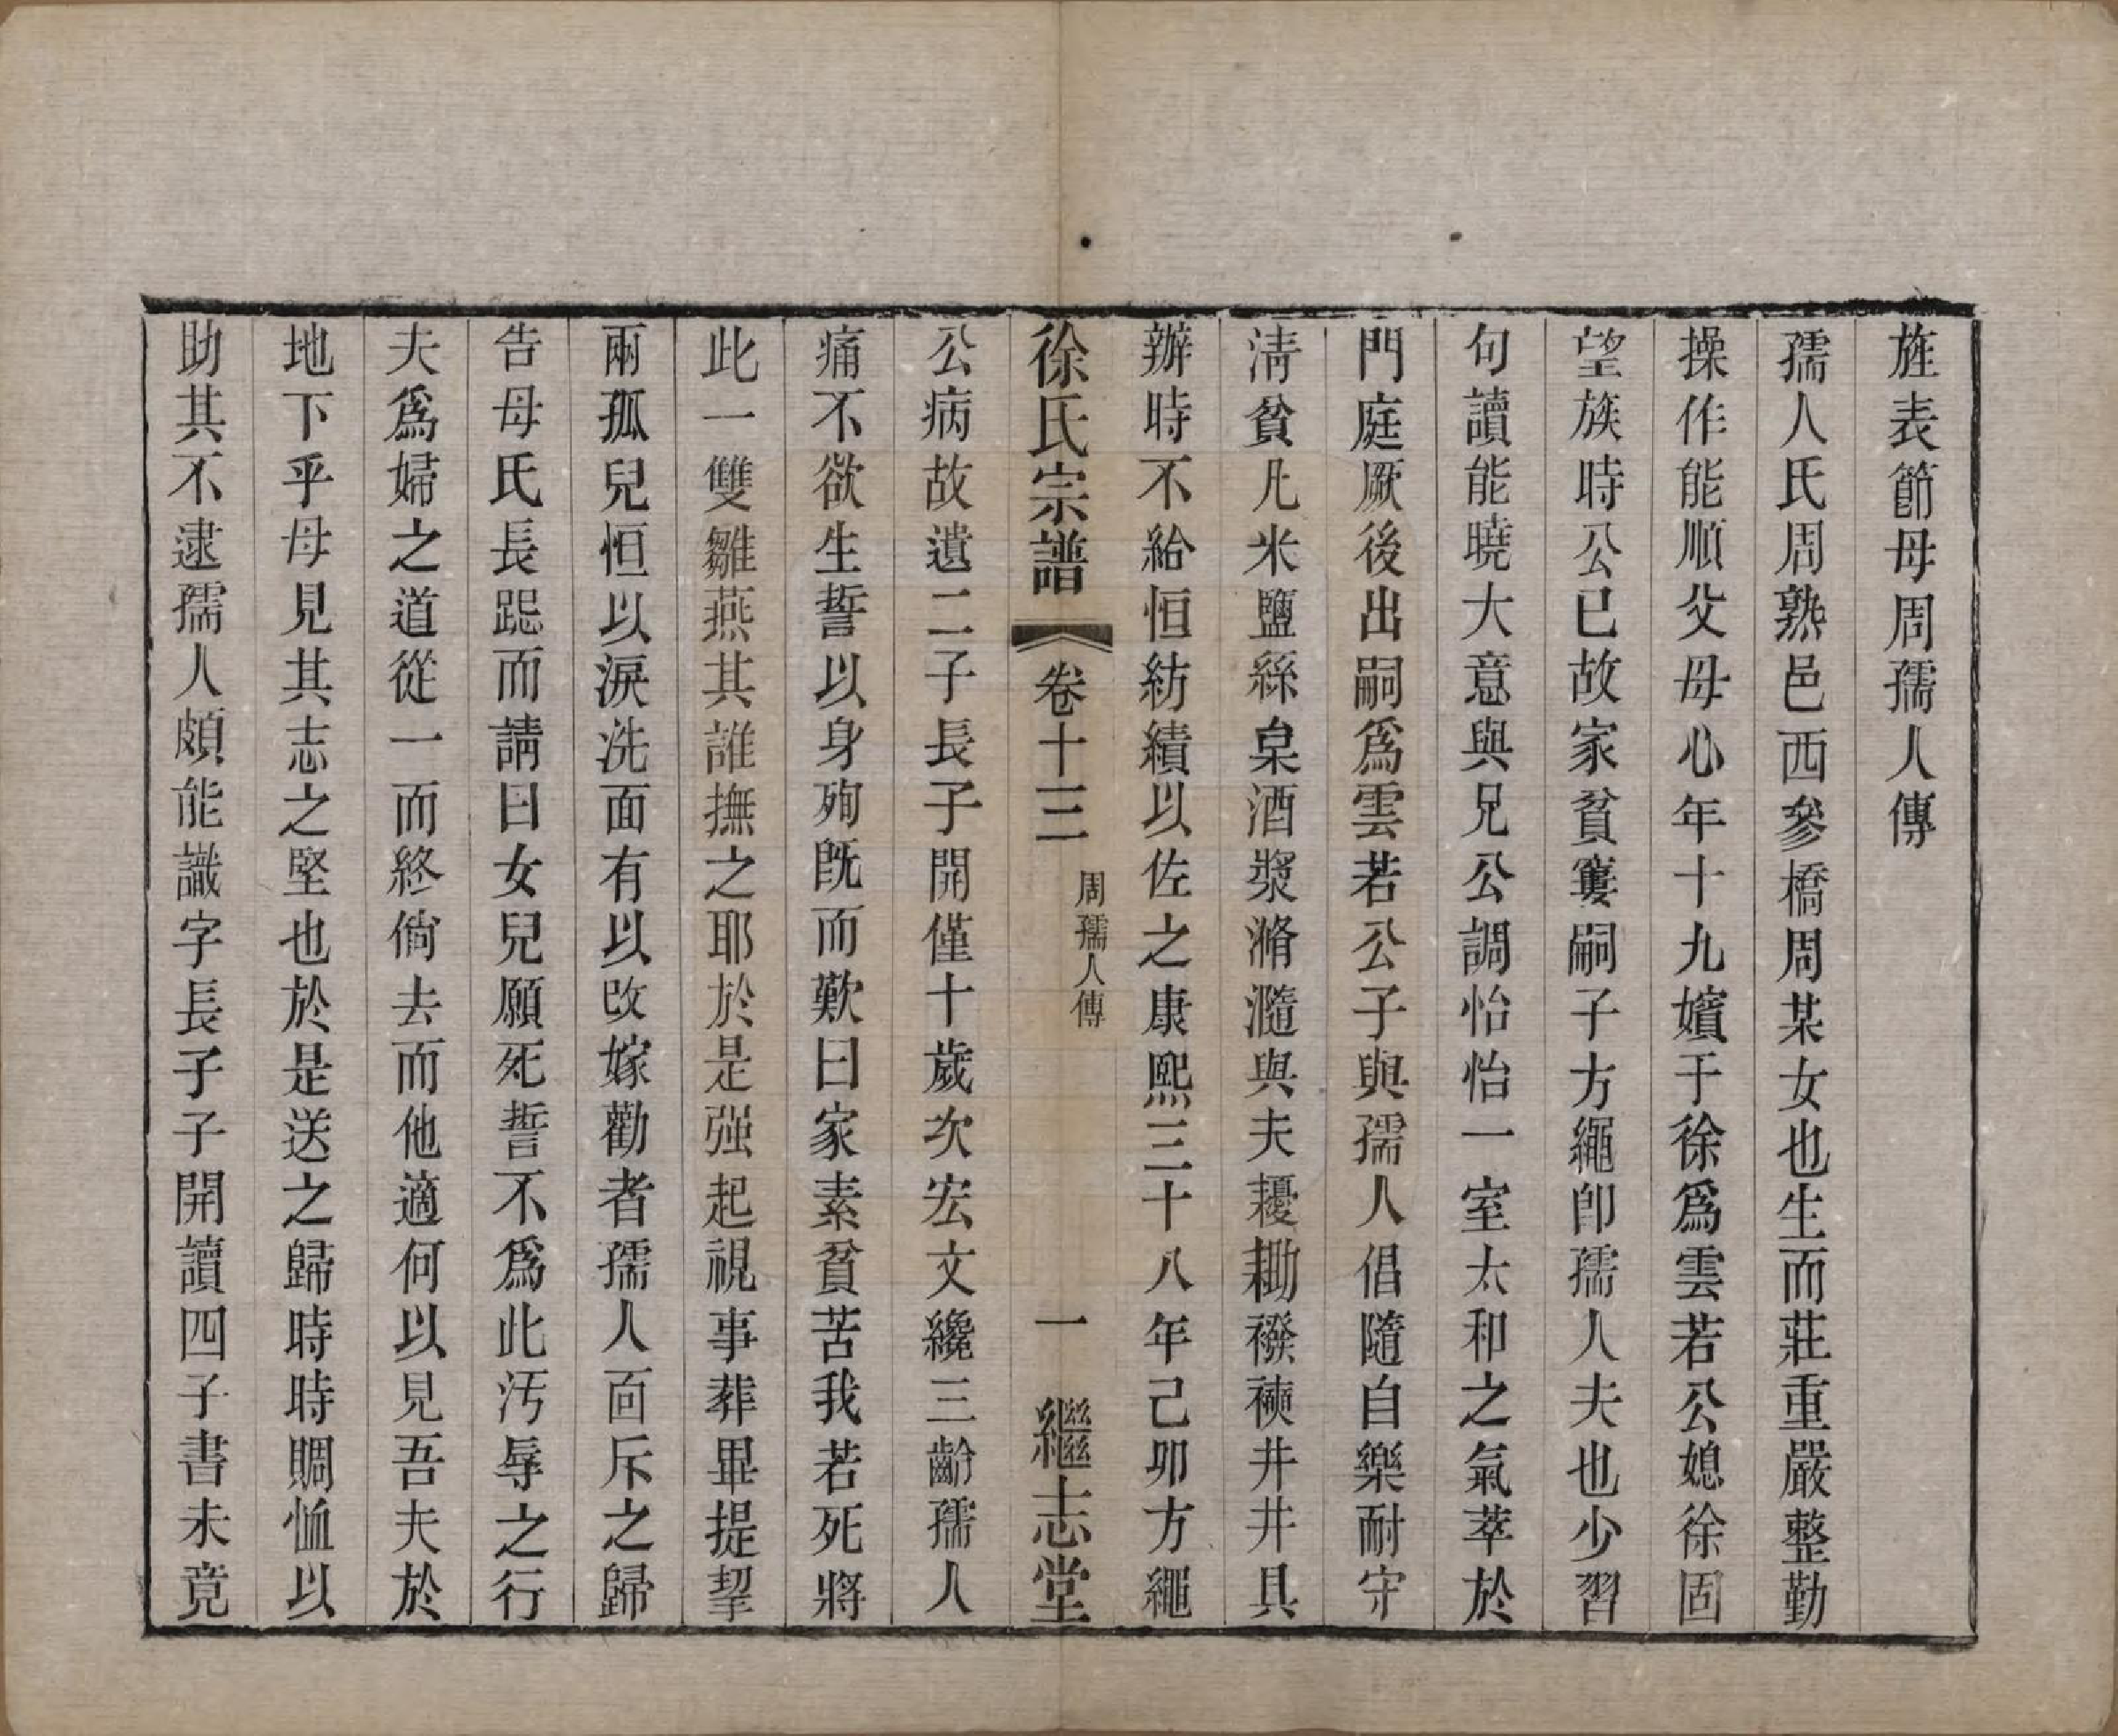 旌表節母周孺人傳
孺人氏周熟邑西參橋周某女也生而莊重嚴整勤
操作能順父母心年十九嬪于徐爲雲若公媳徐固
望族時公已故家貧窶嗣子方繩卽孺人夫也少習
句讀能曉大意與兄公調怡怡一室太和之氣萃於
門庭厥後出嗣爲雲若公子與孺人倡隨自樂耐守
淸貧凡米鹽絲枲酒漿滫瀡與夫耰耡襏襫井井具
辦時不給恒紡績以佐之康熙三十八年己卯方繩
徐氏宗譜 卷十三 周孺人傳 一 繼志堂
公病故遺二子長子開僅十歲次宏文纔三齡孺人
痛不欲生誓以身殉旣而歎曰家素貧苦我若死將
此一雙雛燕其誰撫之耶於是强起視事葬畢提挈
兩孤兒恒以淚洗面有以改嫁勸者孺人面斥之歸
告母氏長跽而請曰女兒願死誓不爲此汚辱之行
夫爲婦之道從一而終倘去而他適何以見吾夫於
地下乎母見其志之堅也於是送之歸時時賙恤以
助其不逮孺人頗能識字長子子開讀四子書未竟